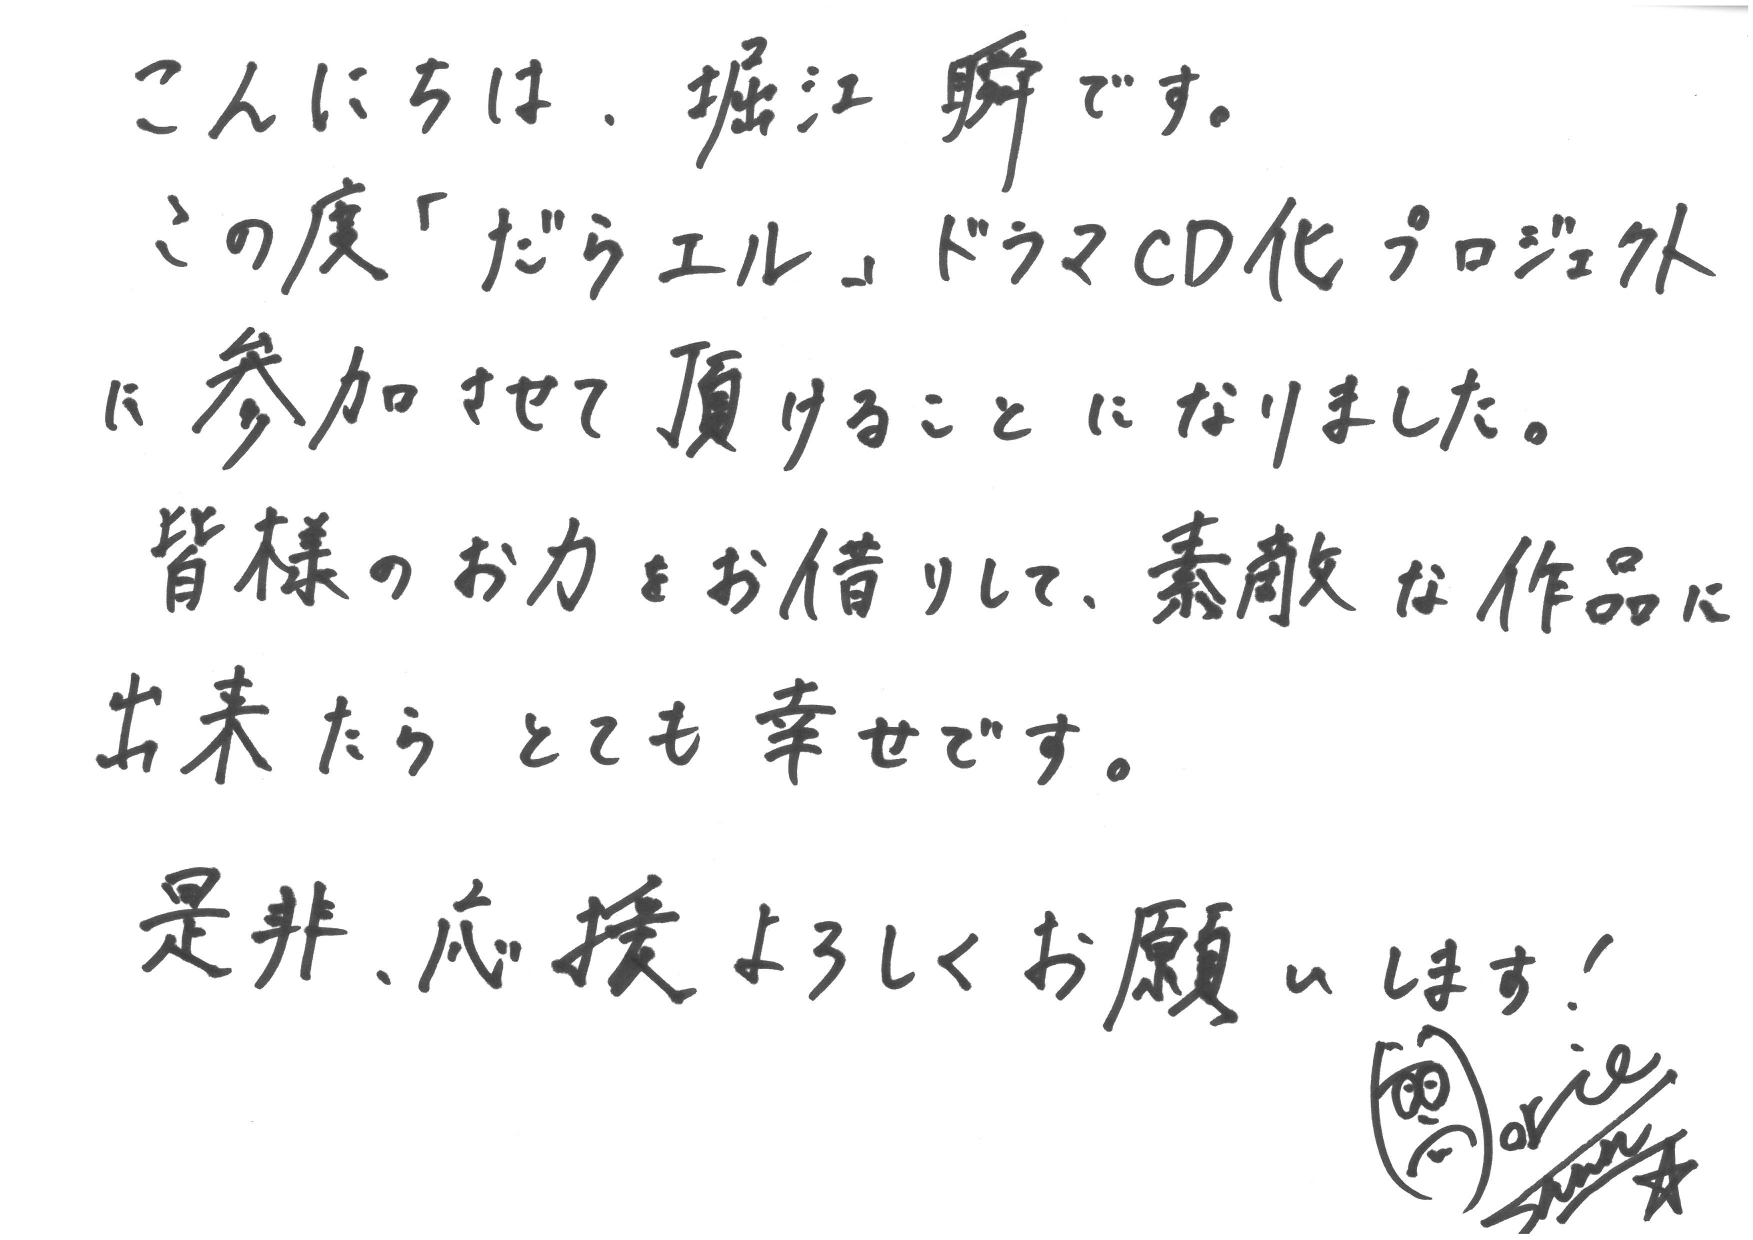 こんにちは、堀江 瞬です。
この度「だらエル」ドラマCD化プロジェクト
に参加させて頂けることになりました。
皆様のお力をお借りして、素敵な作品に
出来たらとても幸せです。
是非、応援よろしくお願いします!
Horie
Shun